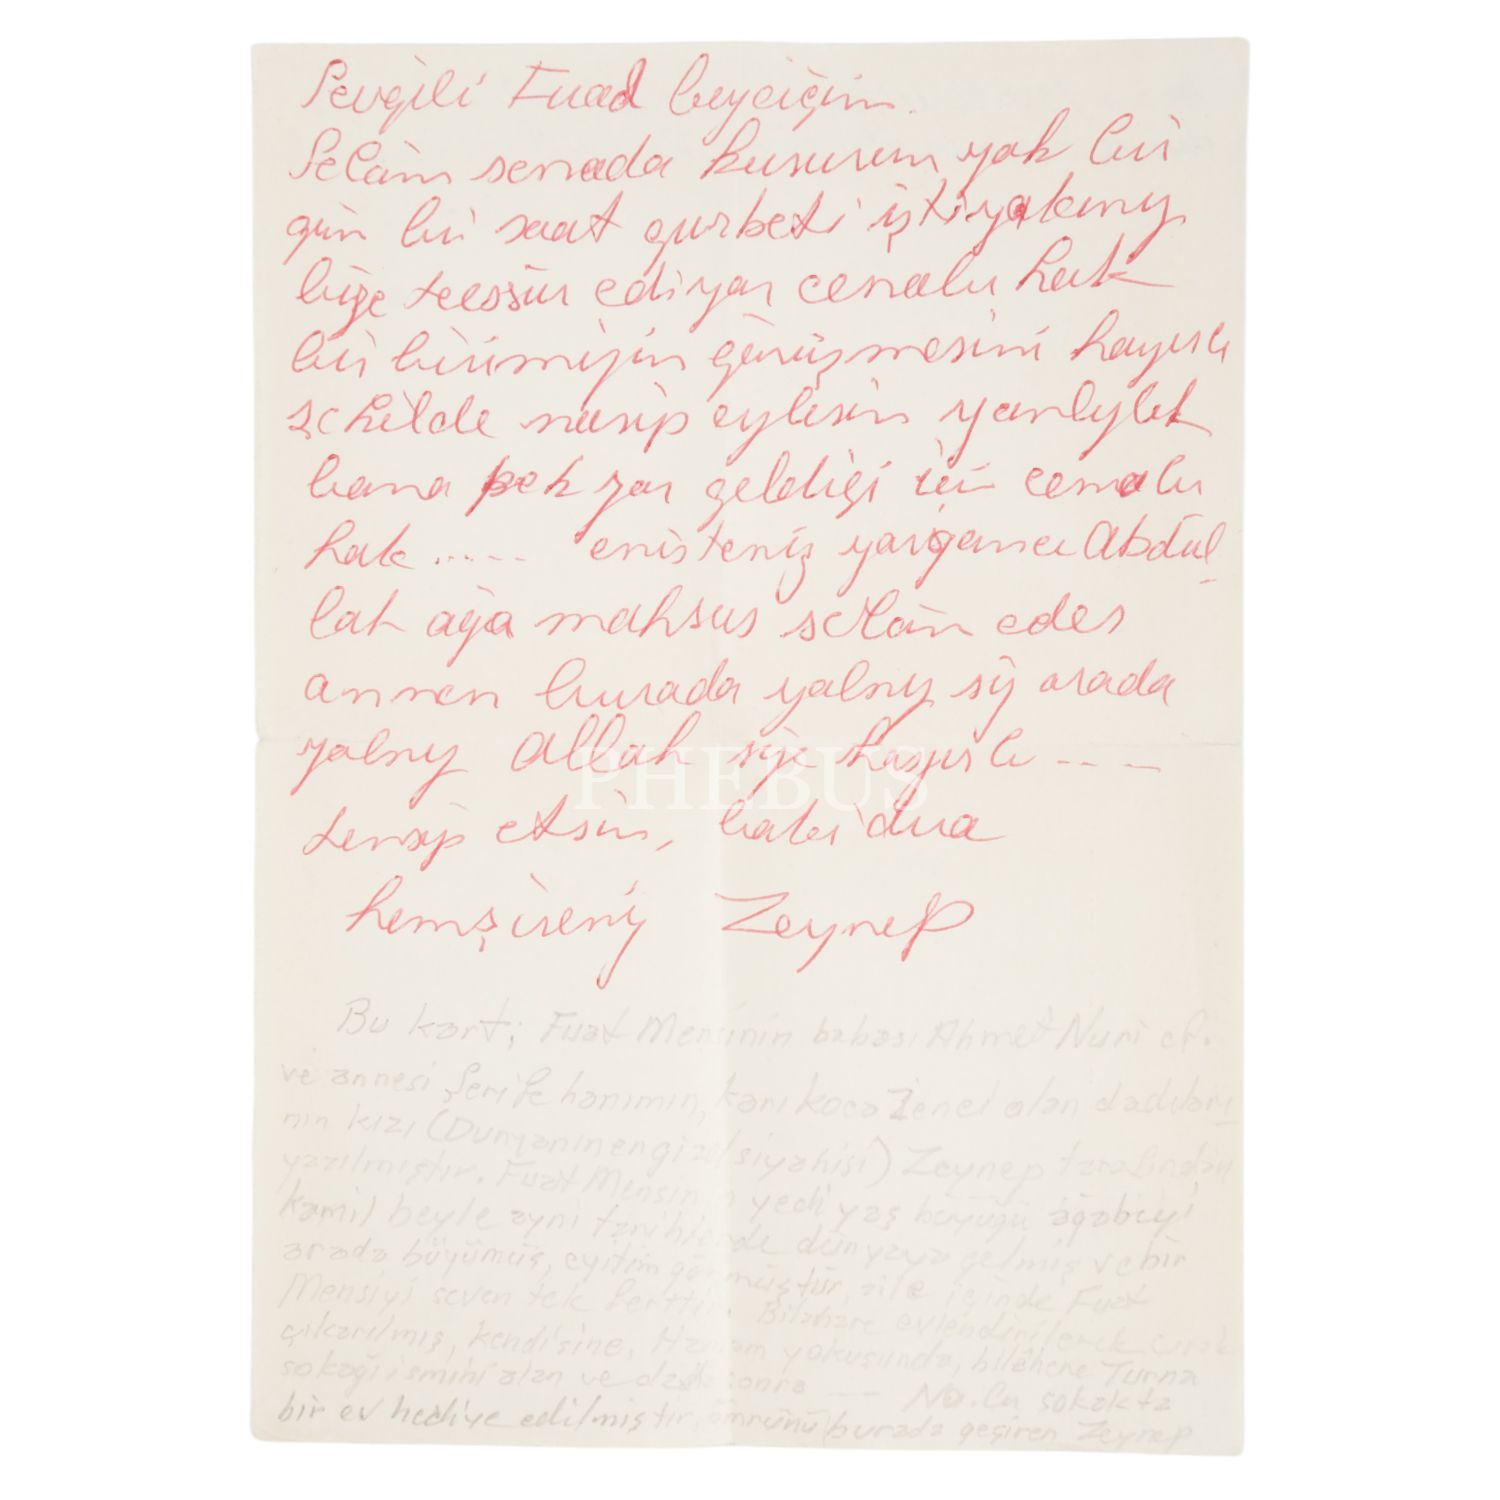 Sevgili Fuad beyciğim.
Selâm senada kusurum yok bir
gün bir saat gurbeti iştiyakınız
bize teessür ediyor cenabı hak
bir birimizin görüşmesini hayırlı
şekilde nasip eylesin yanlızlık
bana pek zor geldiği için cenabı
hak ..... enişteniz yorgancı Abdul
lah ağa mahsus selâm eder
annen burada yalnız siz orada
yalnız Allah size hayırlı ----
tensip etsin, baki dua
hemşireniz Zeynep
PHEBUS
Bu kart; Fuat Mensinin babası Ahmet Nuri ef.
ve annesi Şerife hanımın, karı koca zenci olan dadıları
nın kızı (Dunyanın en güzel siyahisi) Zeynep tarafından
yazılmıştır. Fuat Mensinin yedi yaş büyüğü ağabeyi
Kamil beyle aynı tarihlerde dünyaya gelmiş ve bir
arada büyümüş, eyitim görmüştür, aile içinde Fuat
Mensiyi seven tek ferttir. Bilahare evlendirilerek çırak
çıkarılmış, kendisine, Hamam yokuşunda, bilâhere Turna
sokağı ismini alan ve daha sonra --- No.lu sokakta
bir ev hediye edilmiştir, ömrünü burada geçiren Zeynep